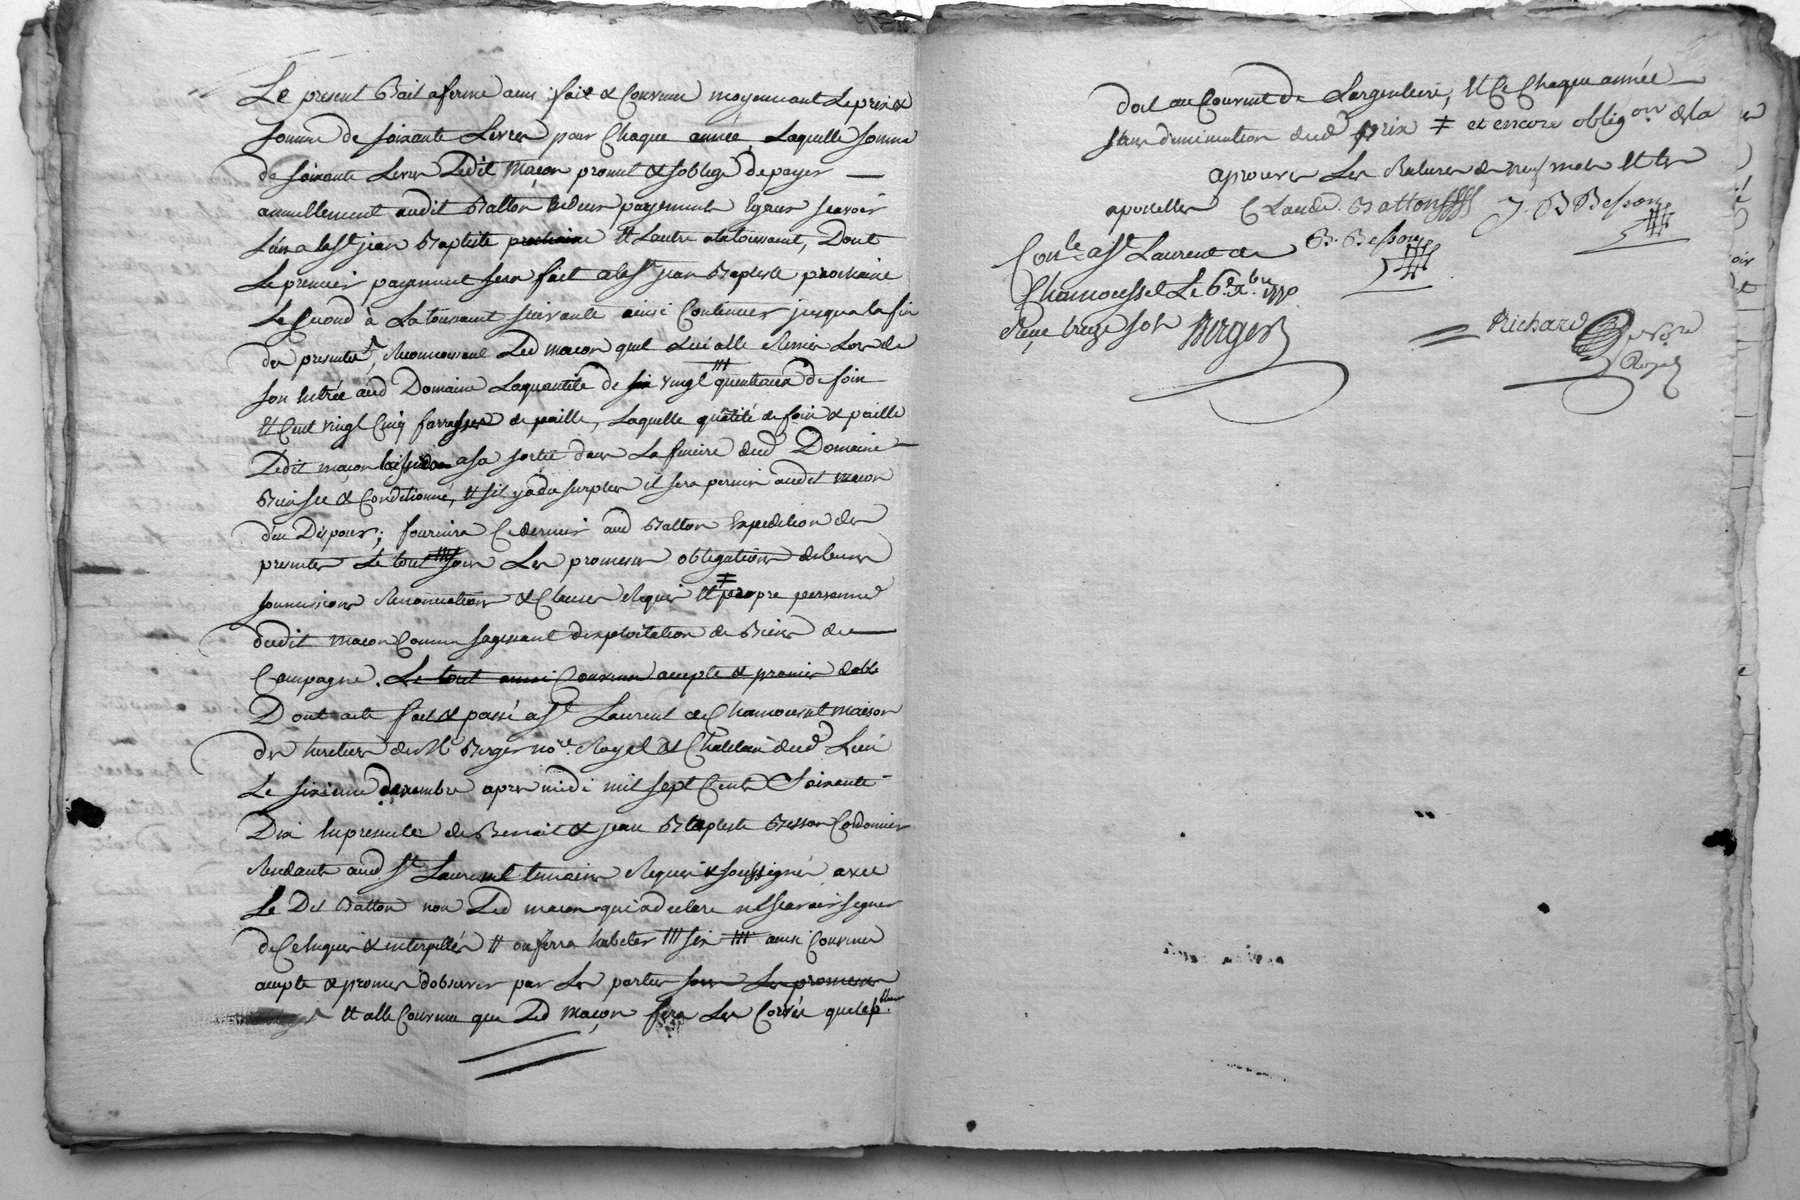 Le present Bail a ferme ainsi fait & Convenu moyennant Le prix &
somme de soixante Livres pour Chaque année, Laquelle somme
de soixante Livres Ledit maçon promet & soblige de payer
annuellement audit Batton en deux payements Egaux scavoir
Lun a la st jean Baptiste prochaine Et Lautre a la toussaint, Dont
Le premier payement sera fait a la st jean Baptiste prochaine
Le second à La toussaint suivante ainsi Continuer jusqua la fin
des presentes, Reconnoissant Led maçon quil Luy a été Remis Lors de
son Entrée aud Domaine La quantité de six vingt quintaux de foin
Et Cent vingt Cinq farrasses de paille, Laquelle quatité de foin & paille
Ledit maçon laissera a sa sortie dans La feniere dud Domaine
Bien sec & Conditionné, Et sil y a du surplus il sera permis audit maçon
den Disposer; fournira Ce dernier aud Batton Expedition des
presentes Le tout sous Les promesses obligations de leurs
soumissions Renonciations & Clauses Requises Et ‡ propre personne
dudit maçon Comme sagissant dexploitation de Biens de
Campagne. Le tout ainsi Convenu accepté & promis
Dont acte fait & passé a st Laurent de Chamousset maison
des heritiers de Me Berger nore Royal & Chatelain dud Lieu
Le sixieme decembre apres midi mil sept Cents Soixante
Dix En presence de Benoit & jean Baptiste Besson Cordonnier
Residants aud st Laurent temoins Requis & soussignés avec
Le Dit Batton non Led maçon qui a declaré ne scavoir signer
de Ce Enquis & interpellés ainsi Convenu
accepté & promis dobserver par Les parties sous Les promesses
Et a été Convenu que Led maçon fera Les Corvées que led sr Batton
doit au Couvent de Largentiere, Et Ce Chaque année
sans diminution dud prix ‡ et encore obligon de la
aprouvés Les Ratures de neuf mots Et les
apostilles Claude Batton J B Besson
B. Besson
Conle a st Laurent de
Chamousset Le 6e Xbre 1770
Reçu treize sols Berger
Richard
nore
Royal